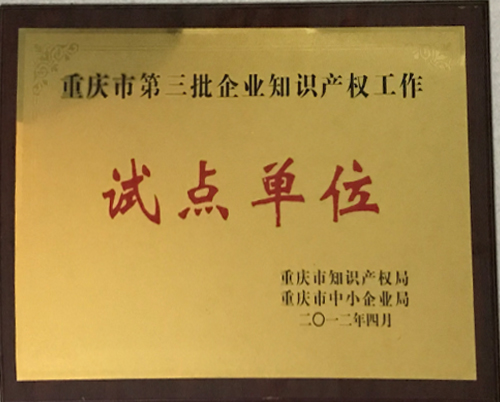 重庆市第三批企业知识产权工作
试点单位
重庆市知识产权局
重庆市中小企业局
二〇一二年四月